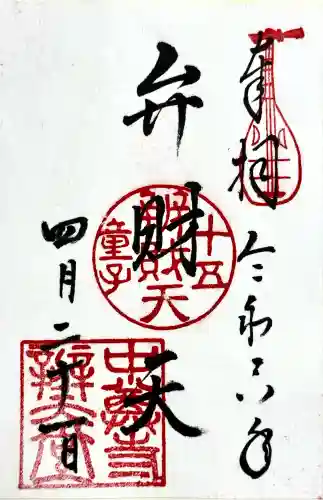 奉拝
令和六年
弁財天
四月二十一日
十五
辨財天
童子
中尊寺
辨天堂